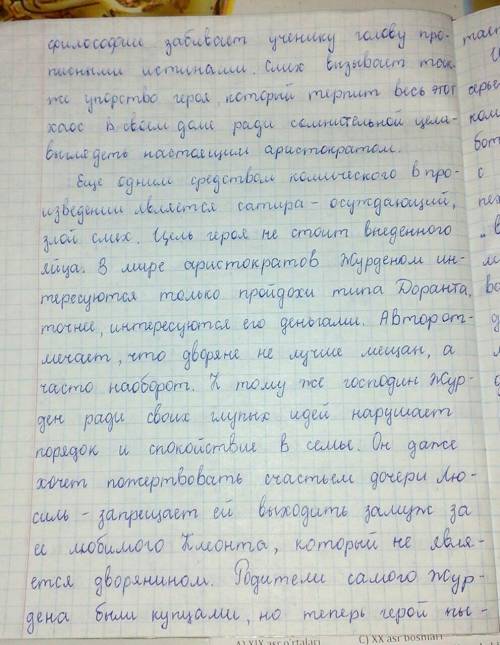 философии забивает ученику голову про-
писными истинами. Смех вызывает так-
же упорство героя, который терпит весь этот
хаос в своем доме ради сомнительной цели-
выглядеть настоящим аристократом.
Еще одним средством комического в про-
изведении является сатира - осуждающий,
злой смех. Цель героя не стоит выеденного
яйца. В мире аристократов Журденом ин-
тересуются только пройдохи типа Доранта,
точнее, интересуются его деньгами. Автор от-
мечает, что дворяне не лучше мещан, а
часто наоборот. К тому же господин Жур-
ден ради своих глупых идей нарушает
порядок и спокойствие в семье. Он даже
хочет пожертвовать счастьем дочери Лю-
силь - запрещает ей выходить замуж за
ее любимого Клеонта, который не явля-
ется дворянином. Родители самого Жур-
дена были купцами, но теперь герой пы-
A) XIX asr o'rtalari
C) XX asr boshlari